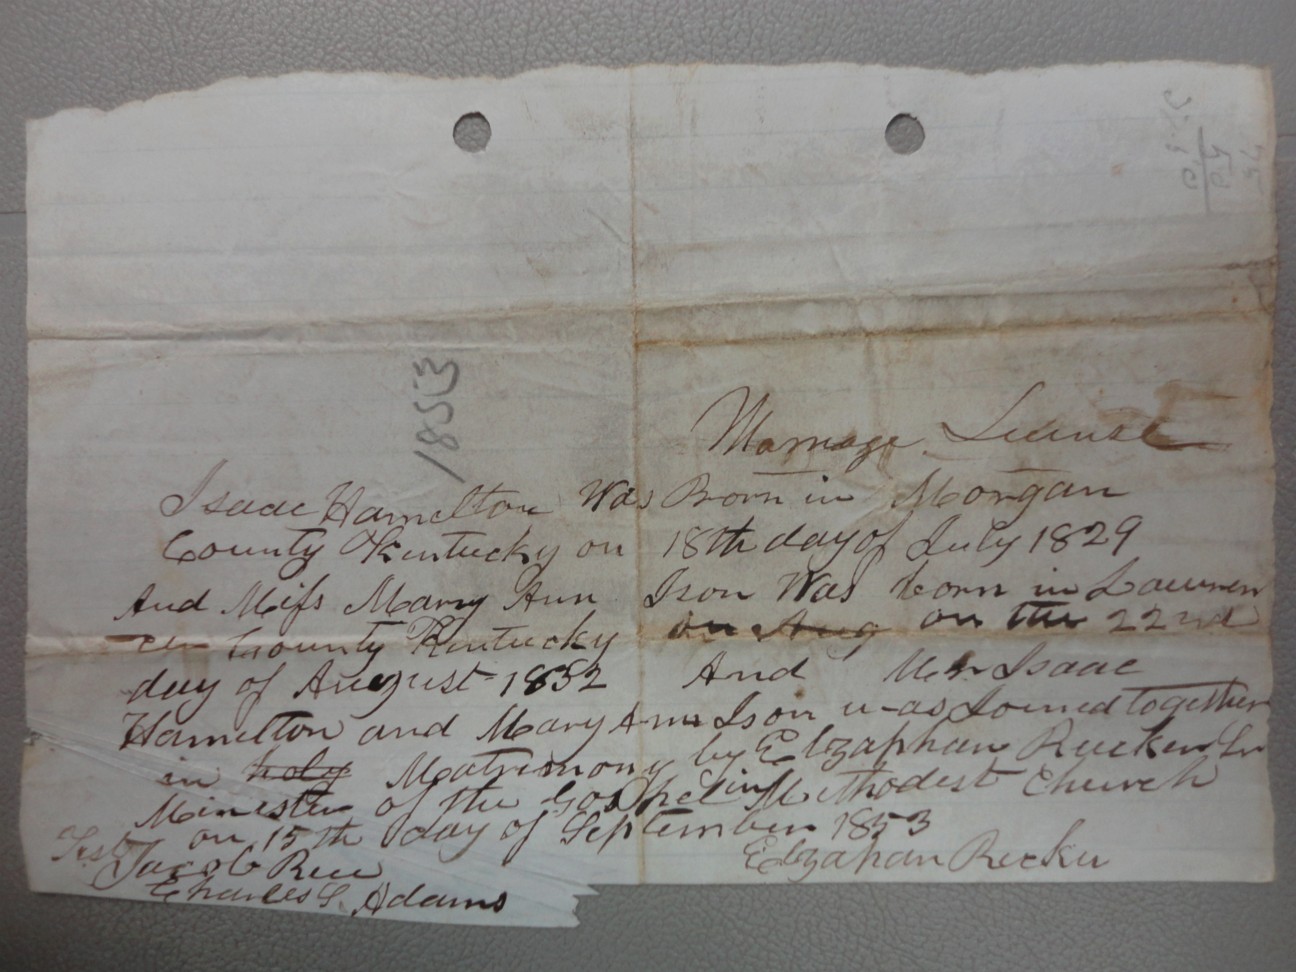 1853
Marriage License
Isaac Hamelton Was Born in Morgan
County Kentucky on 18th day of July 1829
And Miss Mary Ann Ison Was born in Lawren
ce County Kentucky on Aug on the 22nd
day of August 1832 And Mr Isaac
Hamelton and Mary Ann Ison was Joined together
in holy Matrimony by Elzaphan Rucker
Minester of the Gospel in Methodest Church
on 15th day of September 1853
Test Jacob Rice
Elzaphan Rucker
Charles S. Adams